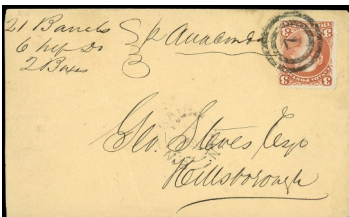 21 Barrels
6 hlf Do
2 Boxes
Sr Anaconda
3
Geo. Steves Esq
Hillsborough
3 3